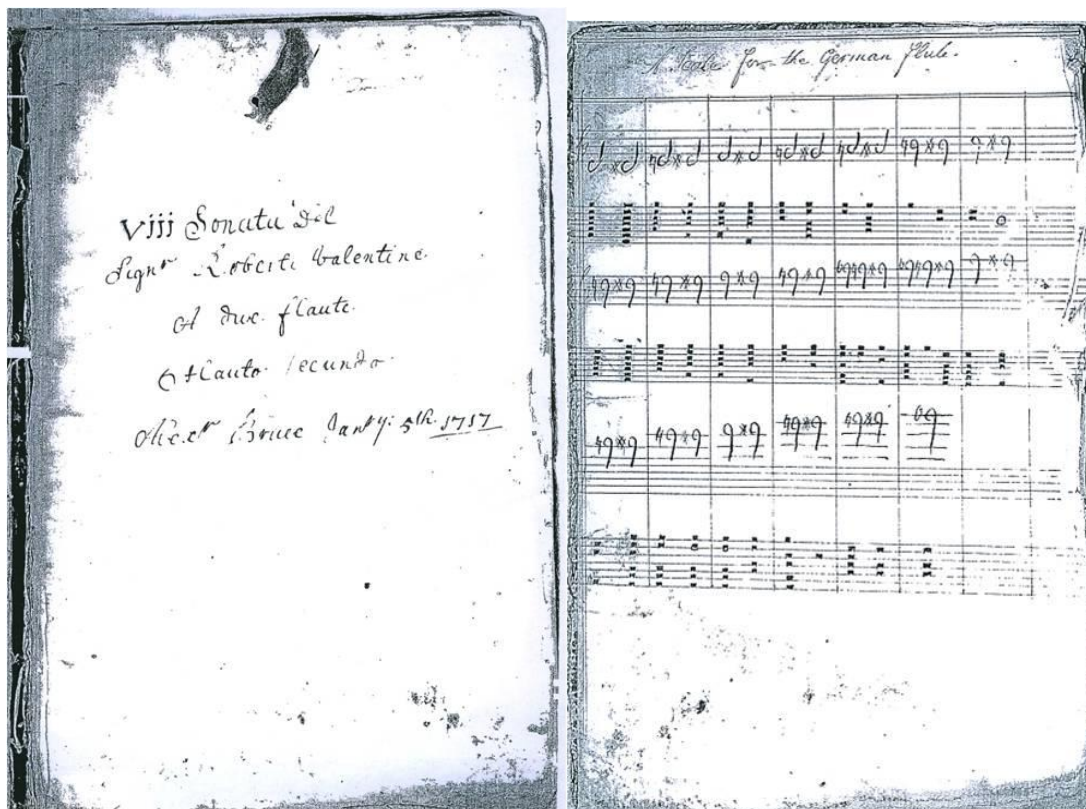 Viij Sonata del
Signr Roberti Valentine
A due flaute
Flauto Secundo
Bruce Janry: 5th. 1717
for the German Flute.